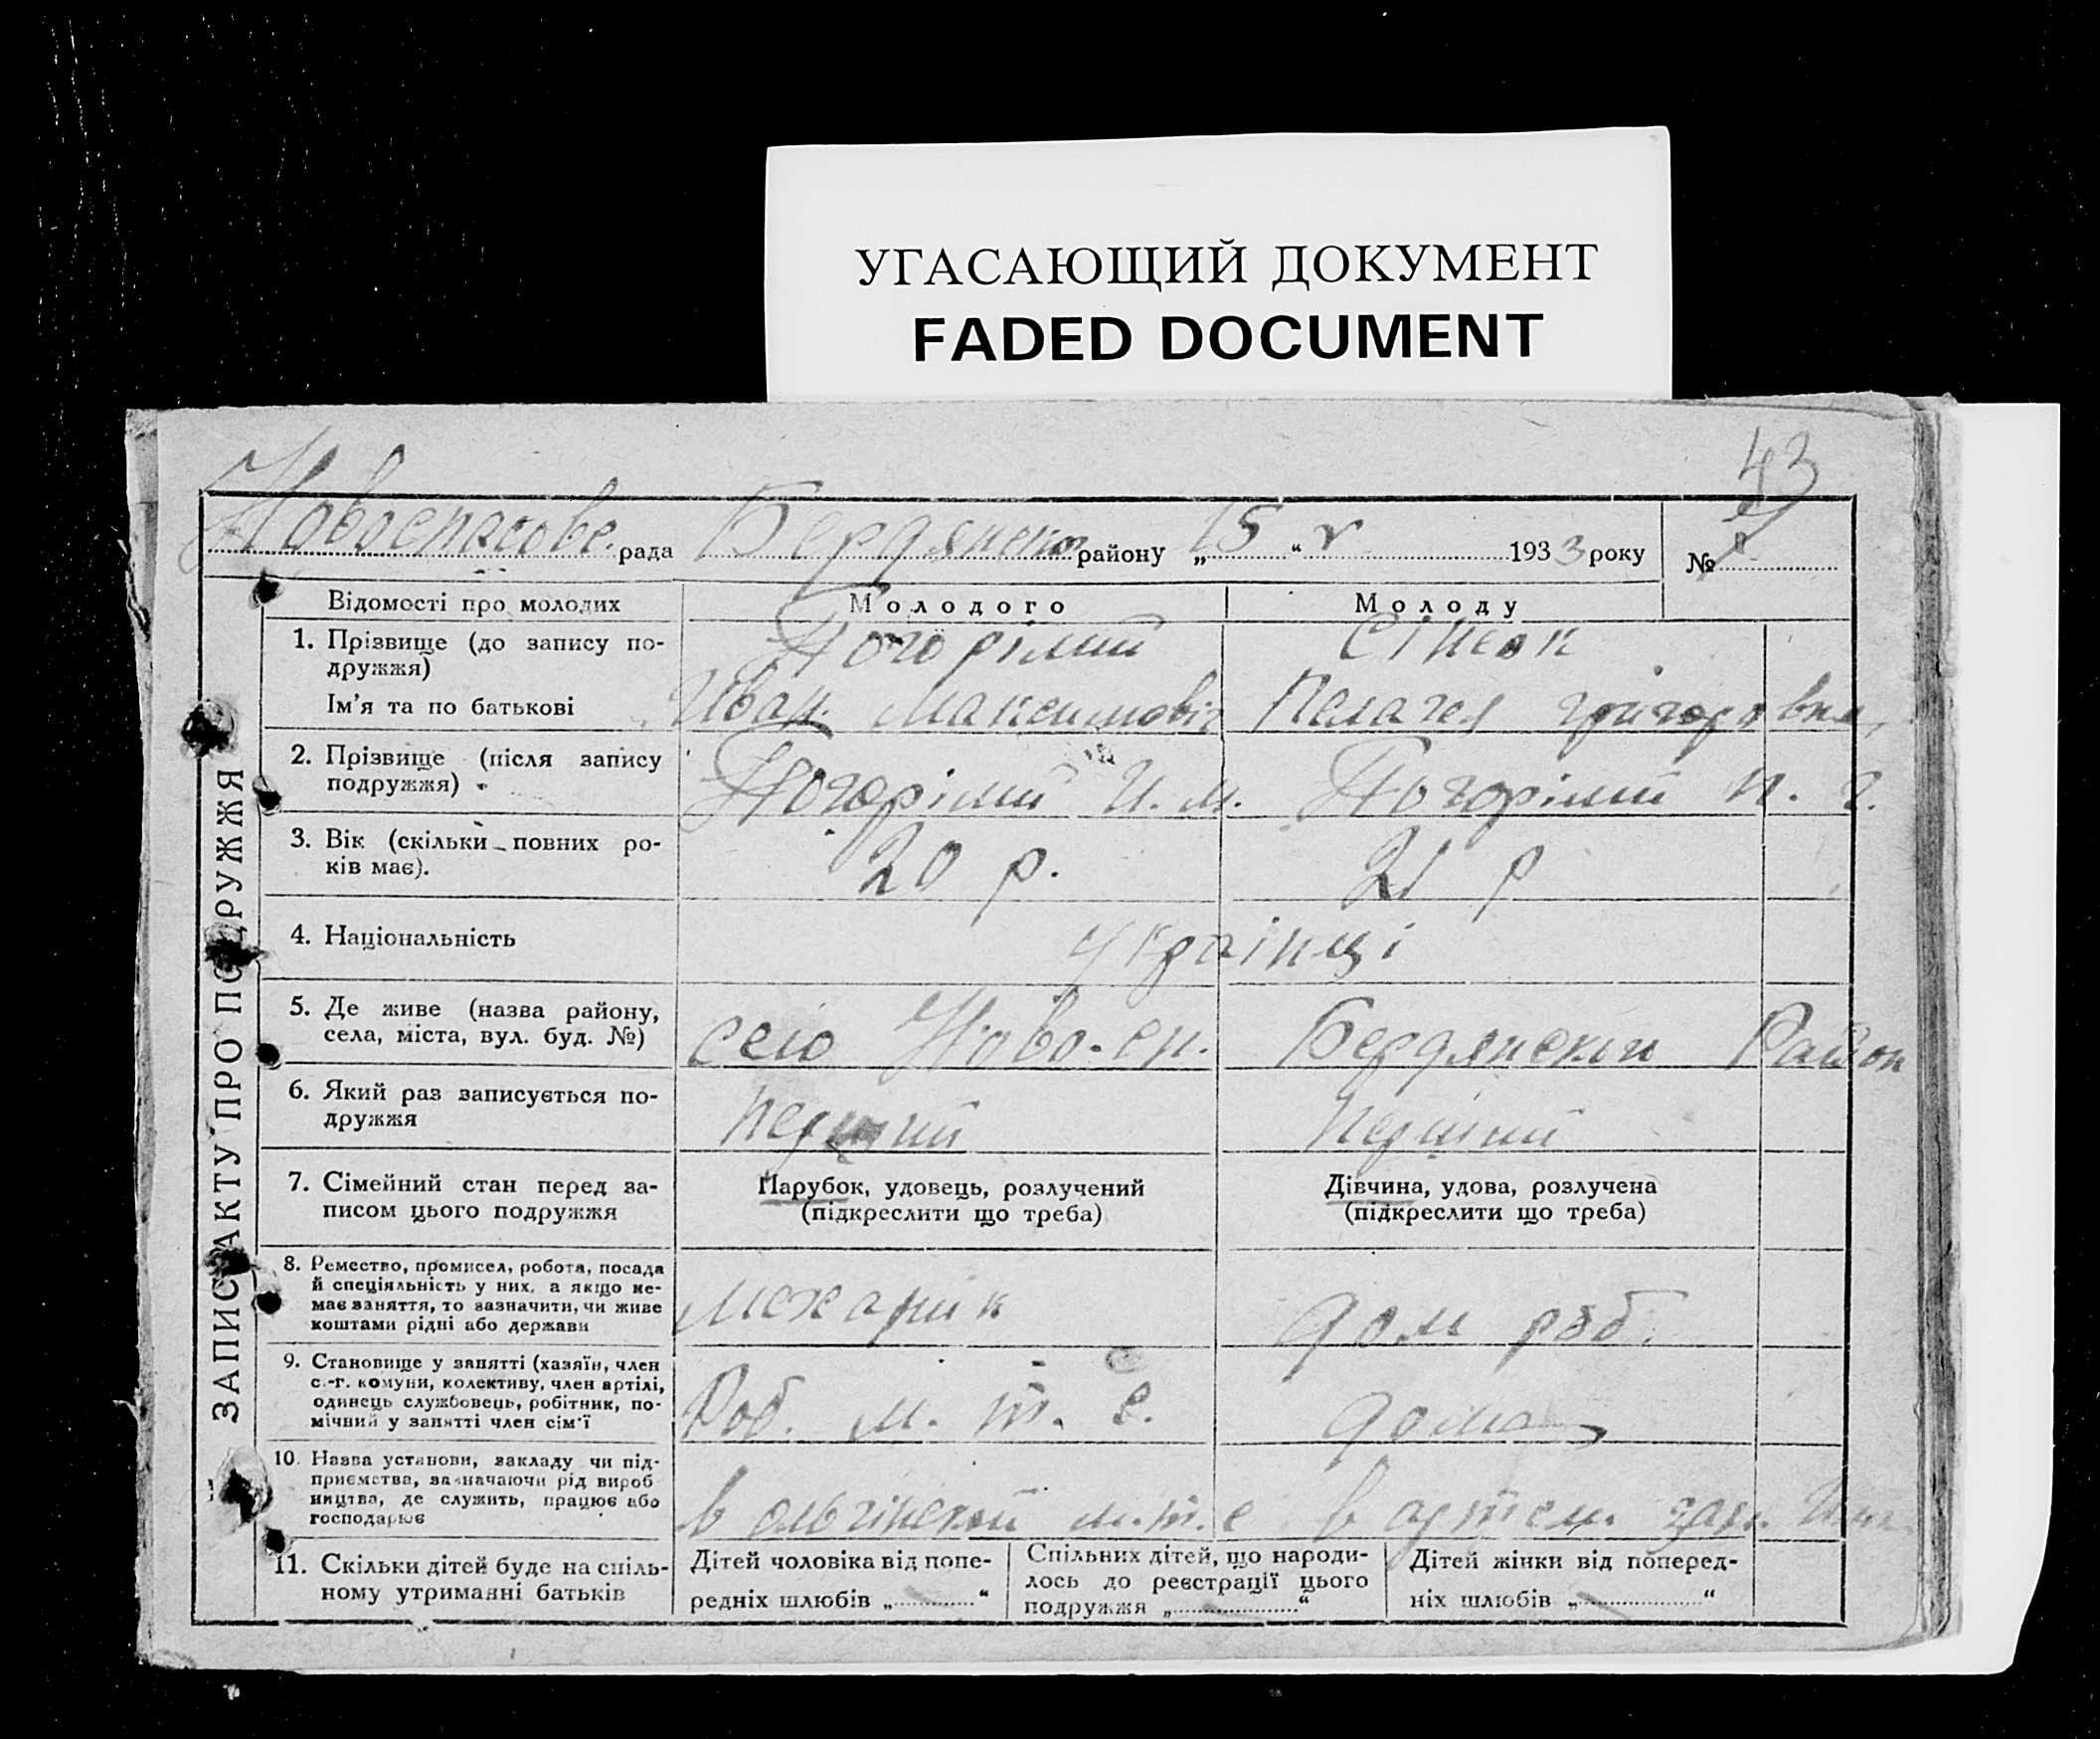 УГАСАЮЩИЙ ДОКУМЕНТ
FADED DOCUMENT
43
Новоспасове. рада Бердянског району „15 “ V 1933 року №
ЗАПИС АКТУ ПРО ПОДРУЖЖЯ
Відомості про молодих Молодого Молоду
1. Прізвище (до запису по-
дружжя) Погорілий Сінєок
Ім'я та по батькові Иван. Максимовіч Пелагея григоровна,
2. Прізвище (після запису
подружжя) Погорілий И. М. Погорілий П. г.
3. Вік (скільки повних ро-
ків має). 20 р. 21 р
4. Національність українці
5. Де живе (назва району,
села, міста, вул. буд. №) село Ново-сп. Бердянский Район
6. Який раз записується по-
дружжя перший перший
7. Сімейний стан перед за-
писом цього подружжя
Парубок, удовець, розлучений
(підкреслити що треба)
Дівчина, удова, розлучена
(підкреслити що треба)
8. Ремество, промисел, робота, посада
й спеціяльність у них, а якщо не-
має заняття, то зазначити, чи живе
коштами рідні або держави
механик дом раб.
9. Становище у занятті (хазяїн, член
с.-г. комуни, колективу, член артілі,
одинець службовець, робітник, по-
мічний у занятті член сім'ї
Роб. м. т. с. дома
10. Назва установи, закладу чи під-
приємства, зазначаючи рід вироб
ництва, де служить, працює або
господарює
в ольгінский м.т.с в артем.
11. Скільки дітей буде на спіль-
ному утриманні батьків
Дітей чоловіка від попе-
редніх шлюбів „ “
Спільних дітей, що народи-
лось до реєстрації цього
подружжя „ “
Дітей жінки від поперед-
ніх шлюбів „ “